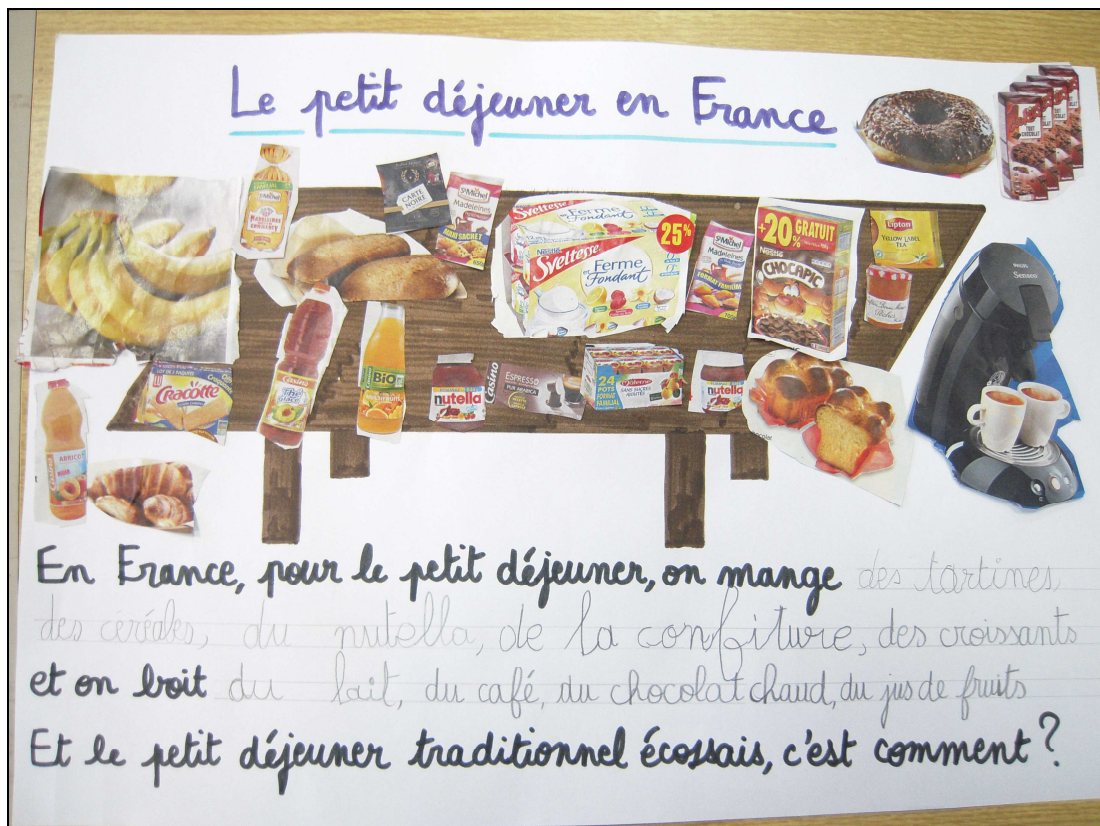 Le petit déjeuner en France
CARTE NOIRE
St Michel
Madeleines
MAXI SACHET
Sveltesse
Ferme & Fondant
25%
NESTLÉ
Sveltesse
Ferme & Fondant
St Michel
Madeleines
+20% GRATUIT
Nestlé
CHOCAPIC
Lipton
YELLOW LABEL TEA
TOUT CHOCOLAT
PHILIPS
Senseo
Cracotte
BIO
nutella
Casino
ESPRESSO
PUR ARABICA
24 POTS
FORMAT FAMILIAL
Materne
SANS SUCRES AJOUTÉS
nutella
ABRICOT
En France, pour le petit déjeuner, on mange des tartines,
des céréales, du nutella, de la confiture, des croissants
et on boit du lait, du café, du chocolat chaud, du jus de fruits
Et le petit déjeuner traditionnel écossais, c'est comment ?